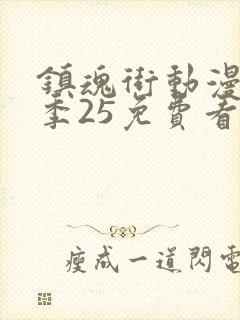 鎮魂街動漫
季25免費看
瘦成一道閃電